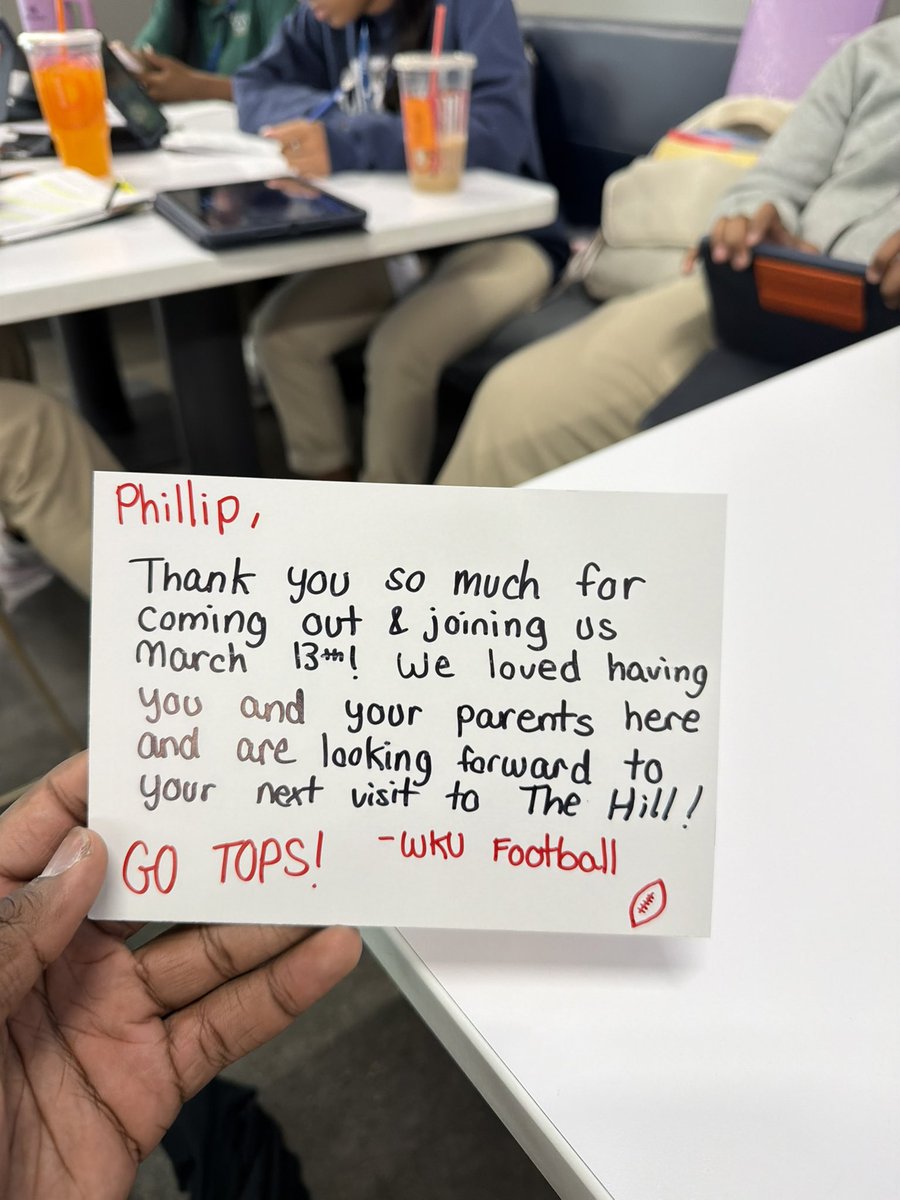 Phillip,
Thank you so much for
coming out & joining us
March 13th! We loved having
you and your parents here
and are looking forward to
your next visit to The Hill!
GO TOPS! -WKU Football